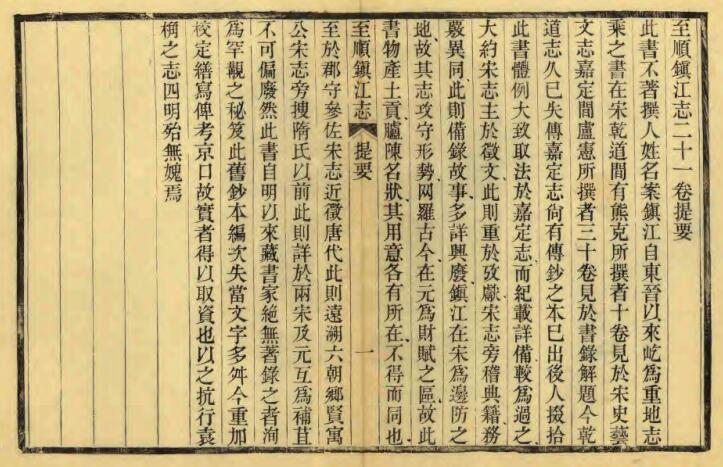 至順鎭江志二十一卷提要
此書不著撰人姓名案鎭江自東晉以來屹爲重地志
乘之書在宋乾道閒有熊克所撰者十卷見於宋史藝
文志嘉定閒盧憲所撰者三十卷見於書錄解題今乾
道志久已失傳嘉定志尙有傳鈔之本已出後人掇拾
此書體例大致取法於嘉定志而紀載詳備較爲過之
大約宋志主於徵文此則重於攷獻宋志旁稽典籍務
覈異同此則備錄故事多詳興廢鎭江在宋爲邊防之
地故其志攻守形勢网羅古今在元爲財賦之區故此
書物產土貢臚陳名狀其用意各有所在不得而同也
至順鎭江志 提要 一
至於郡守參佐宋志近徵唐代此則遠溯六朝鄕賢寓
公宋志旁搜隋氏以前此則詳於兩宋及元互爲補苴
不可偏廢然此書自明以來藏書家絕無著錄之者洵
爲罕觀之秘笈此舊鈔本編次失當文字多舛今重加
校定繕寫俾考京口故實者得以取資也以之抗行袁
桷之志四明殆無媿焉